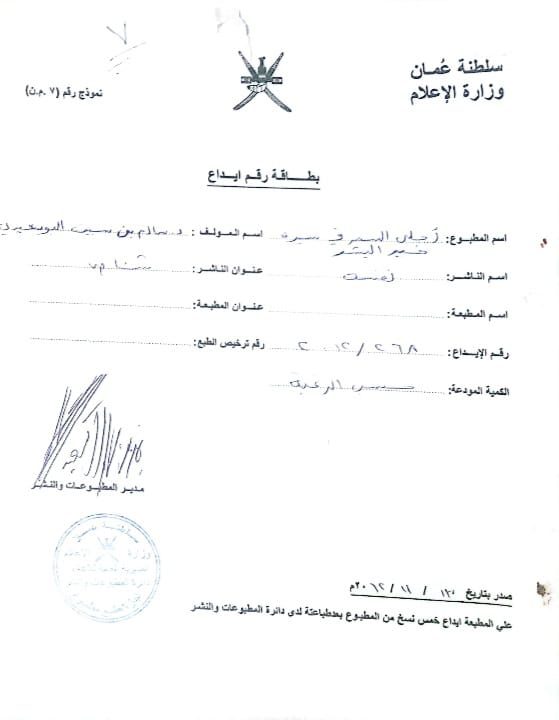 سلطنة عُمـان
وزارة الإعلام
نموذج رقم (٧ .م.ن)
بطـــاقـة رقـم ايـداع
اسم المطبوع: السمر في سيرة
خير البشر
اسم المؤلف: د. سالم بن
اسم الناشر: نفسه
عنوان الناشر:
اسم المطبعة:
عنوان المطبعة:
رقم الإيداع: ٢٠١٢/٢٦٨
رقم ترخيص الطبع:
الكمية المودعة: حسب الرغبة
مدير المطبـوعـات والنشـر
صدر بتاريخ ١٣ / ١١ / ٢٠١٢م
علي المطبعة ايداع خمس نسخ من المطبوع بعدطباعتة لدى دائرة المطبوعات والنشر